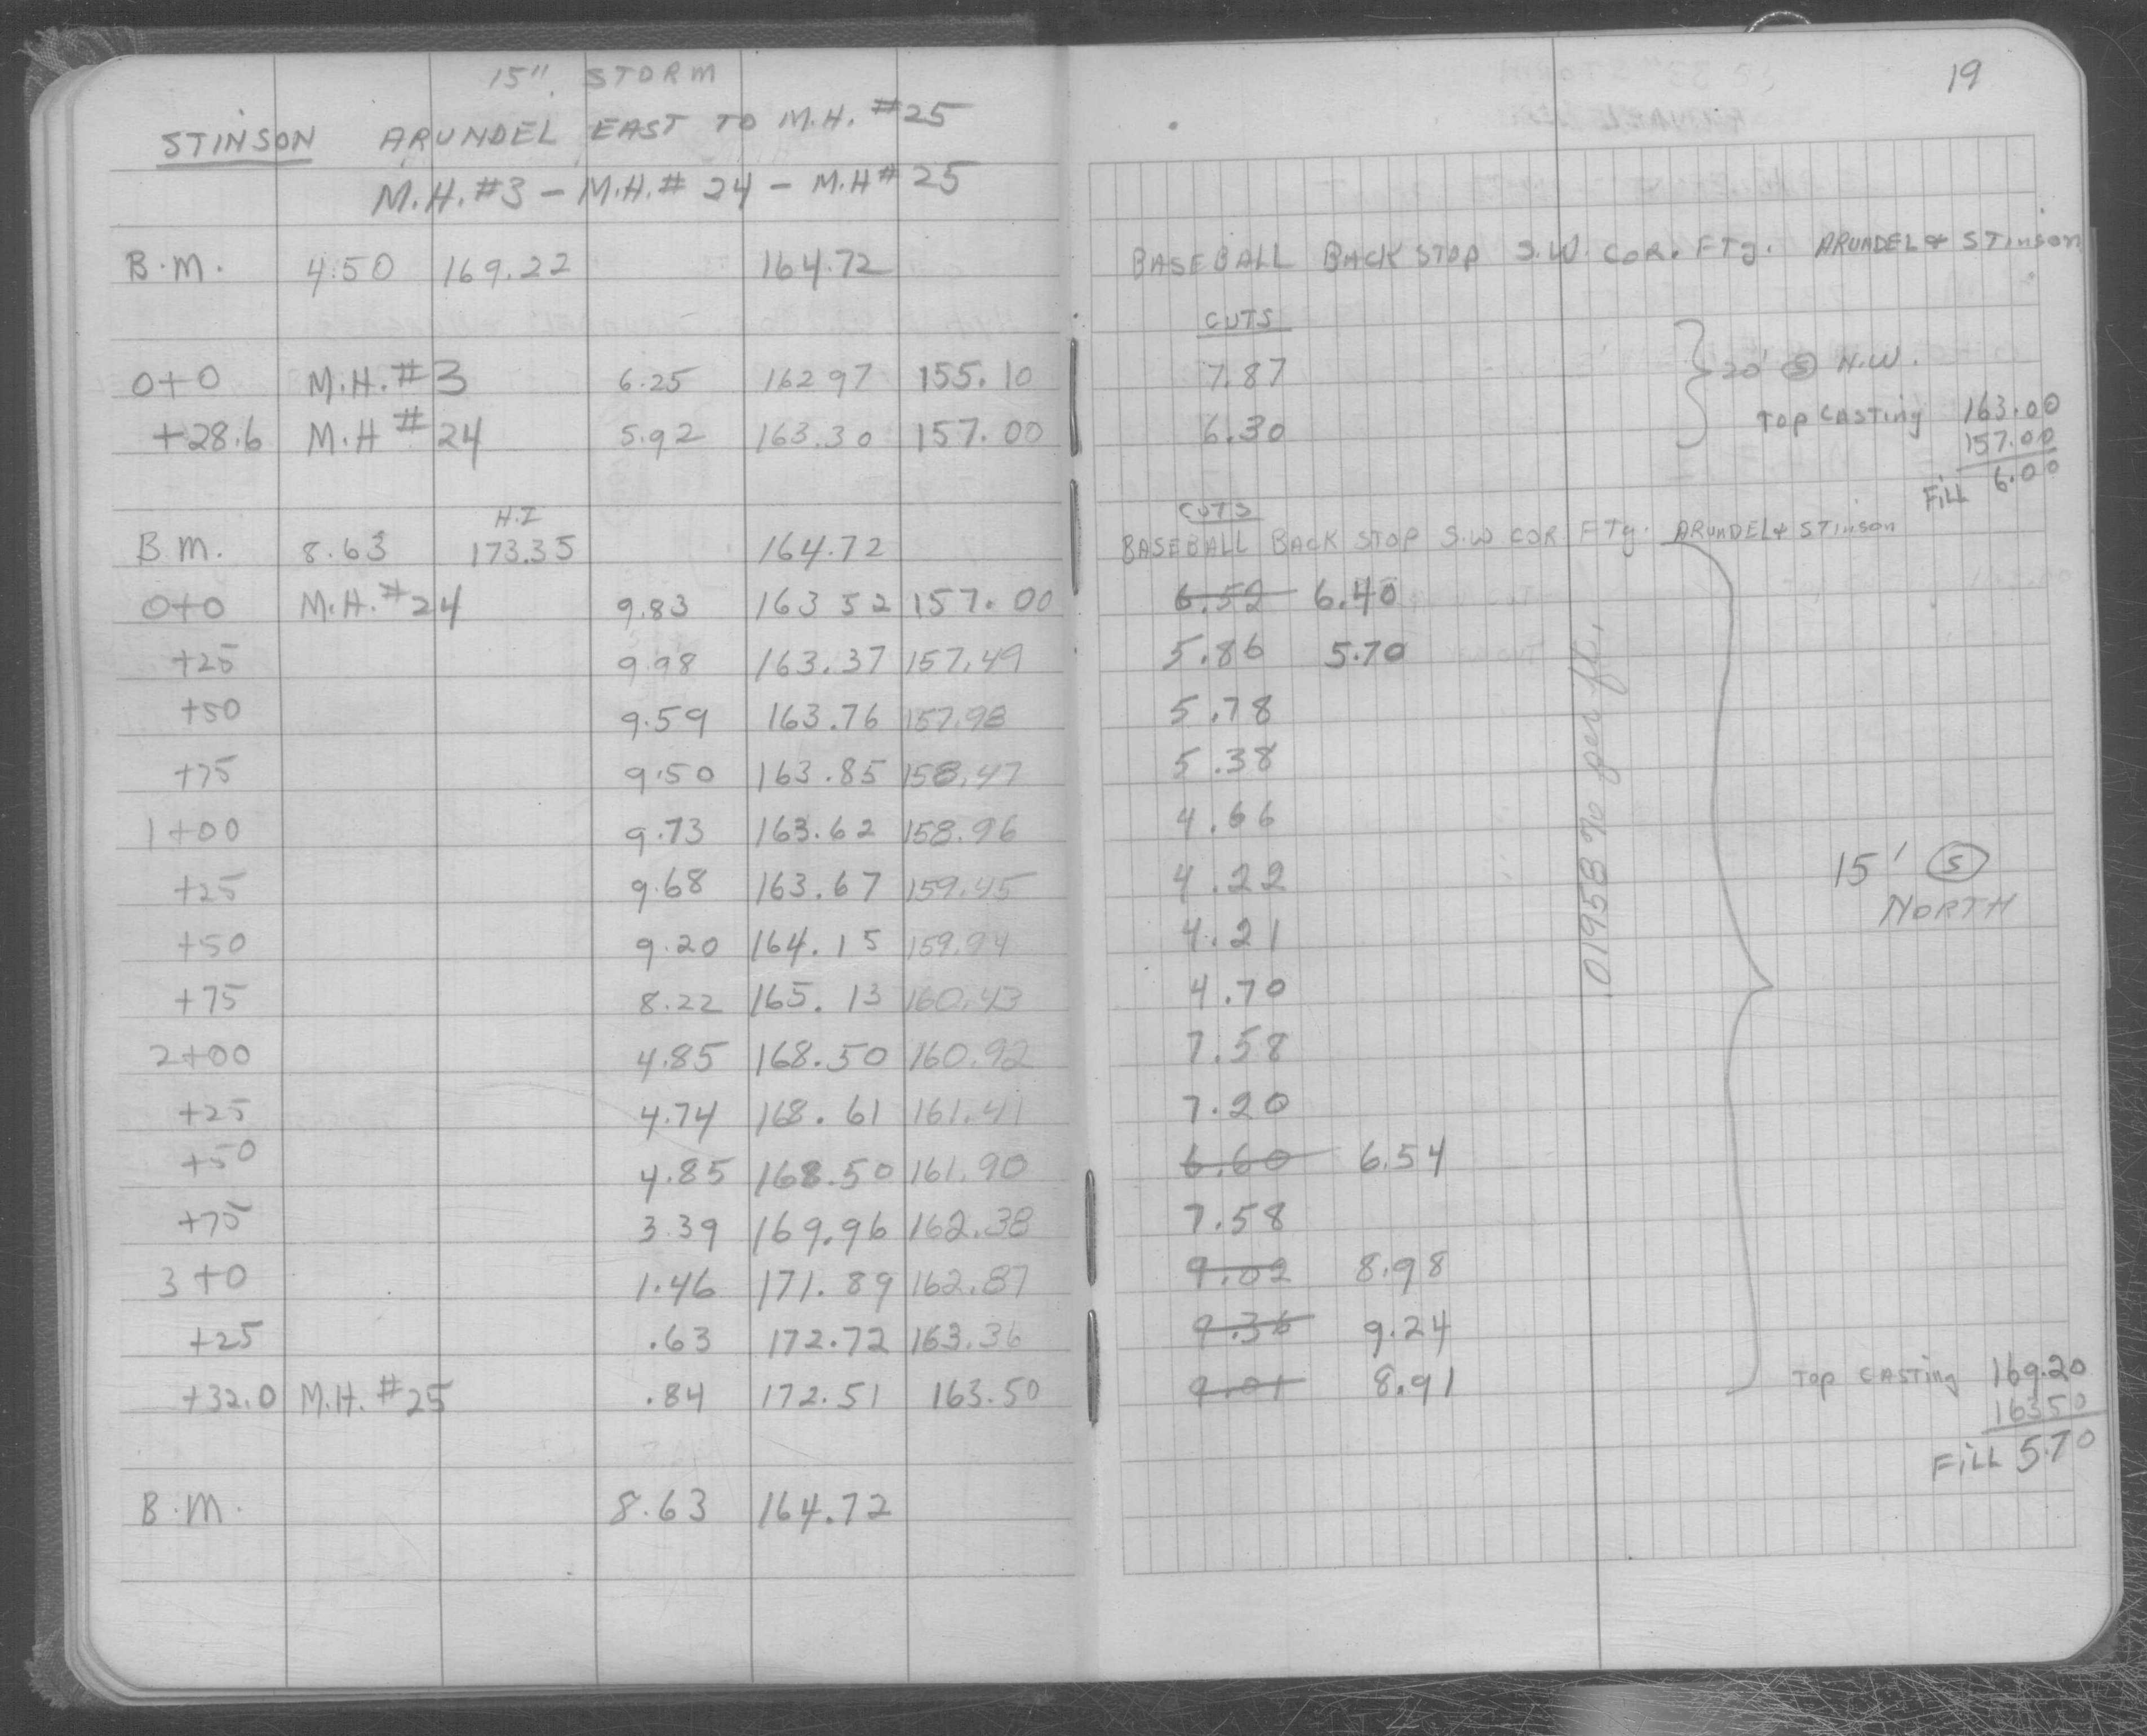 15" STORM
STINSON ARUNDEL EAST TO M.H. #25
M.H.#3 - M.H.# 24 - M.H# 25
B.M. 4.50 169.22 164.72
0+0 M.H.#3 6.25 162 97 155.10
+28.6 M.H # 24 5.92 163.30 157.00
H.I
B.M. 8.63 173.35 164.72
0+0 M.H.#24 9.83 163 52 157.00
+25 9.98 163.37 157.49
+50 9.59 163.76 157.98
+75 9.50 163.85 158.47
1+00 9.73 163.62 158.96
+25 9.68 163.67 159.45
+50 9.20 164.15 159.94
+75 8.22 165.13 160.43
2+00 4.85 168.50 160.92
+25 4.74 168.61 161.41
+50 4.85 168.50 161.90
+75 3.39 169.96 162.38
3+0 1.46 171.89 162.87
+25 .63 172.72 163.36
+32.0 M.H.#25 .84 172.51 163.50
B.M. 8.63 164.72
19
BASEBALL BACK STOP S.W. COR. FTg. ARUNDEL & STinson
CUTS
7.87 20' S N.W.
6.30 TOP CASTing 163.00
157.00
FiLL 6.00
CUTS
BASEBALL BACK STOP S.W COR FTg. ARUNDEL & STinson
6.52 6.40
5.86 5.70
5.78
5.38
4.66
4.22
4.21
4.70
7.58
7.20
6.60 6.54
7.58
9.02 8.98
9.36 9.24
9.01 8.91
.01958 % per ft.
15' S
NORTH
TOP CASTing 169.20
163 50
FiLL 5.70